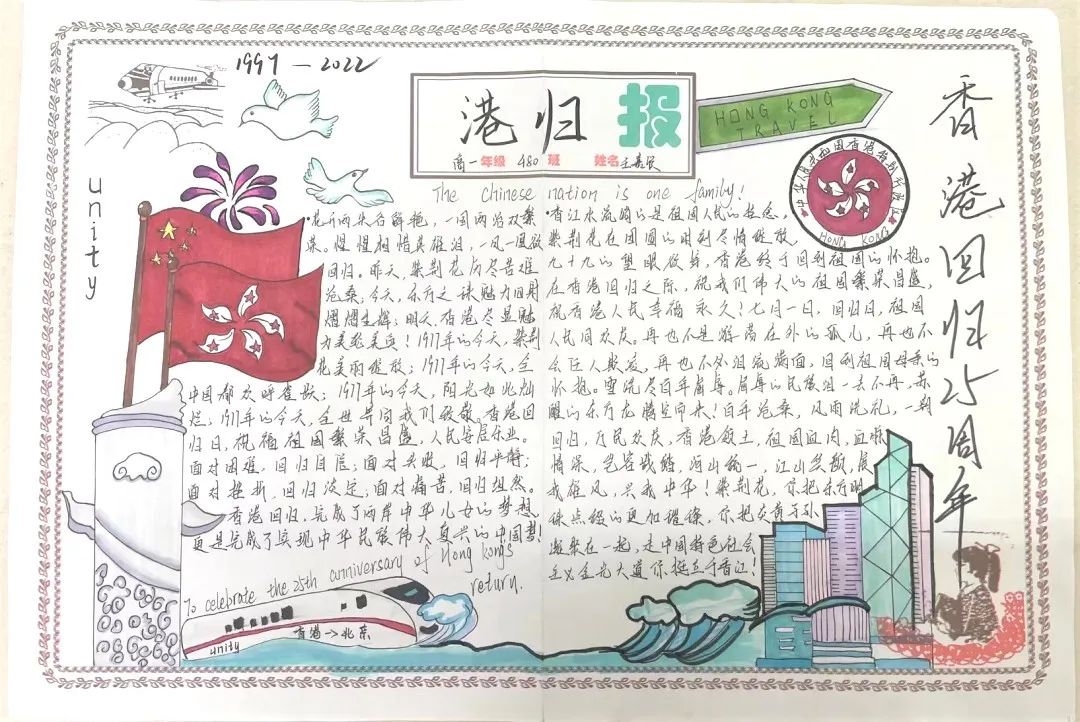 1997 — 2022
港归报
高一年级 480 班 姓名
HONG KONG
TRAVEL
中华人民共和国香港特别行政区
HONG KONG
香港回归25周年
unity
The Chinese nation is one family!
花开两朵各鲜艳，一国两治双繁
荣。惺惺相惜英雄泪，一风一雨发
回归。昨天，紫荆花历尽苦难
沧桑；今天，东方之珠魅力四射
熠熠生辉；明天，香港尽显魅
力美轮美奂！1977年的今天，紫荆
花美丽绽放；1977年的今天，全
中国都欢呼雀跃；1977年的今天，阳光如此灿
烂，1977年的今天，全世界向我们致敬。香港回
归日，祝福祖国繁荣昌盛，人民安居乐业。
面对困难，回归自信；面对失败，回归平静；
面对挫折，回归淡定；面对痛苦，回归坦然。
香港回归，完成了两岸中华儿女的梦想，
更是完成了实现中华民族伟大复兴的中国梦！
香江水流淌的是祖国人民的挂念，
紫荆花在团圆的时刻尽情绽放，
九十九的望眼欲穿，香港终于回到祖国的怀抱。
在香港回归之际，祝我们伟大的祖国繁荣昌盛，
祝香港人民幸福永久！七月一日，回归日，祖国
人民同欢庆。再也不是游荡在外的孤儿，再也不
会任人欺凌，再也不外泪流满面，回到祖国母亲的
怀抱。雪洗尽百年屈辱。屈辱的民族泪一去不再，苏
醒的东方龙腾空而来！百年沧桑，风雨洗礼，一朝
回归，万民欢庆，香港领土，祖国血肉，血脉
情深，包容战略，河山统一，江山
我雄风，兴我中华！紫荆花，你把东方明
珠点缀的更加璀璨，你把炎黄子孙
凝聚在一起，走中国特色社会
主义金光大道你挺立于香江！
To celebrate the 25th anniversary of Hong Kong's
return.
香港→北京
unity